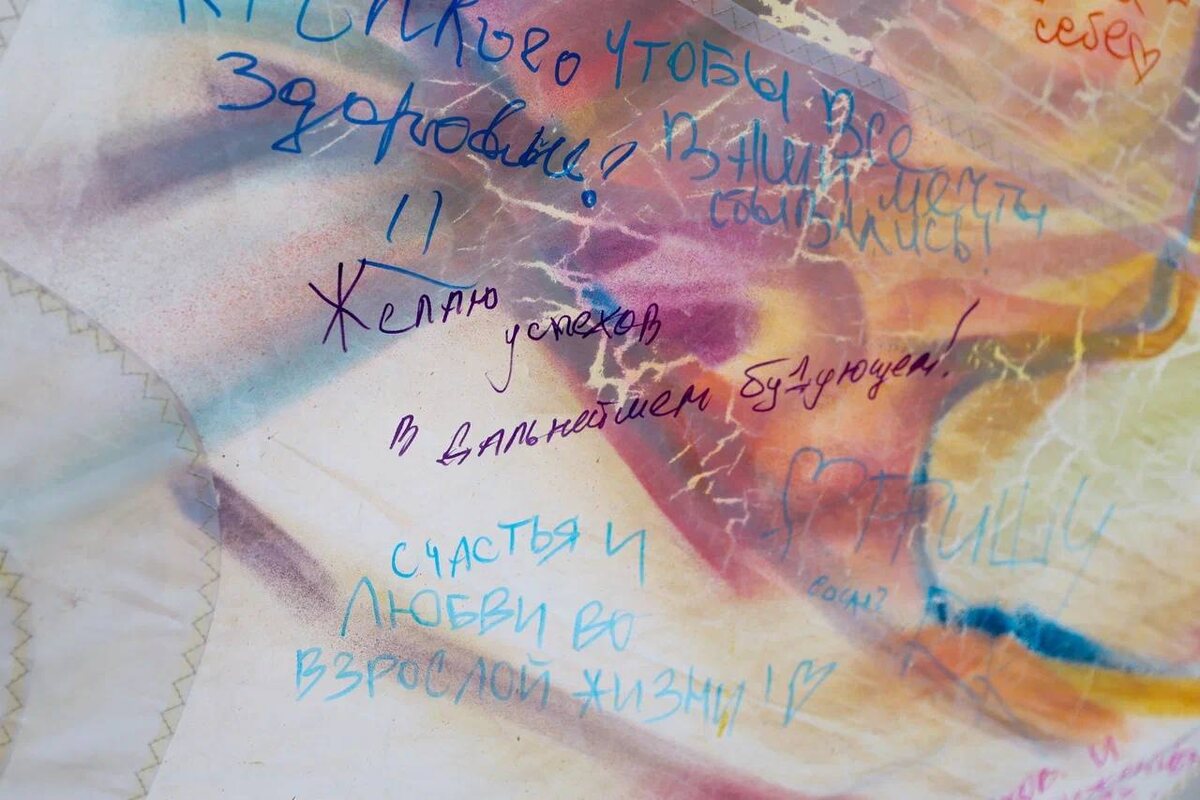 крепкого
здоровье!
чтобы все
в жизни мечты
сбывались!
себе
Желаю
успехов
в дальнейшем будующем!
Пишу
СЧАСТЬЯ И
ЛЮБВИ ВО
ВЗРОСЛОЙ ЖИЗНИ!
и